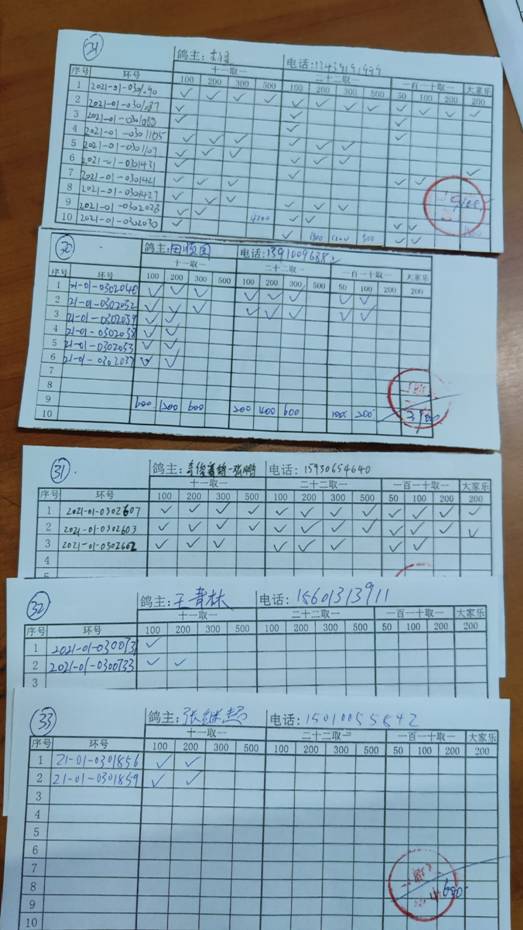 鸽主:
电话:
序号 环号 十一取一 二十二取一 一百一十取一 大家乐
100 200 300 500 100 200 300 500 50 100 200 200
1 2021-01-0301190
2 2021-01-0301187
3 2021-01-0301189
4 2021-01-0301185
5 2021-01-0301109
6 2021-01-0301431
7 2021-01-0301421
8 2021-01-0301427
9 2021-01-0302028
10 2021-01-0302030
30 鸽主: 电话:
序号 环号 十一取一 二十二取一 一百一十取一 大家乐
100 200 300 500 100 200 300 500 50 100 200 200
1 21-01-0302040
2 21-01-0302032
3 21-01-0302039
4 21-01-0302038
5 21-01-0302033
6 21-01-0302037
7
8
9
10 600 1200 600 200 600 200
31 鸽主: 电话:15930654640
序号 环号 十一取一 二十二取一 一百一十取一 大家乐
100 200 300 500 100 200 300 500 50 100 200 200
1 2021-01-0302607
2 2021-01-0302603
3 2021-01-0302602
4
5
32 鸽主:王青林 电话:15601313911
序号 环号 十一取一 二十二取一 一百一十取一 大家乐
100 200 300 500 100 200 300 500 50 100 200 200
1
2 2021-01-0300733
3
33 鸽主:张继超 电话:15010055842
序号 环号 十一取一 二十二取一 一百一十取一 大家乐
100 200 300 500 100 200 300 500 50 100 200 200
1 21-01-0301856
2 21-01-0301859
3
4
5
6
7
8
9
10